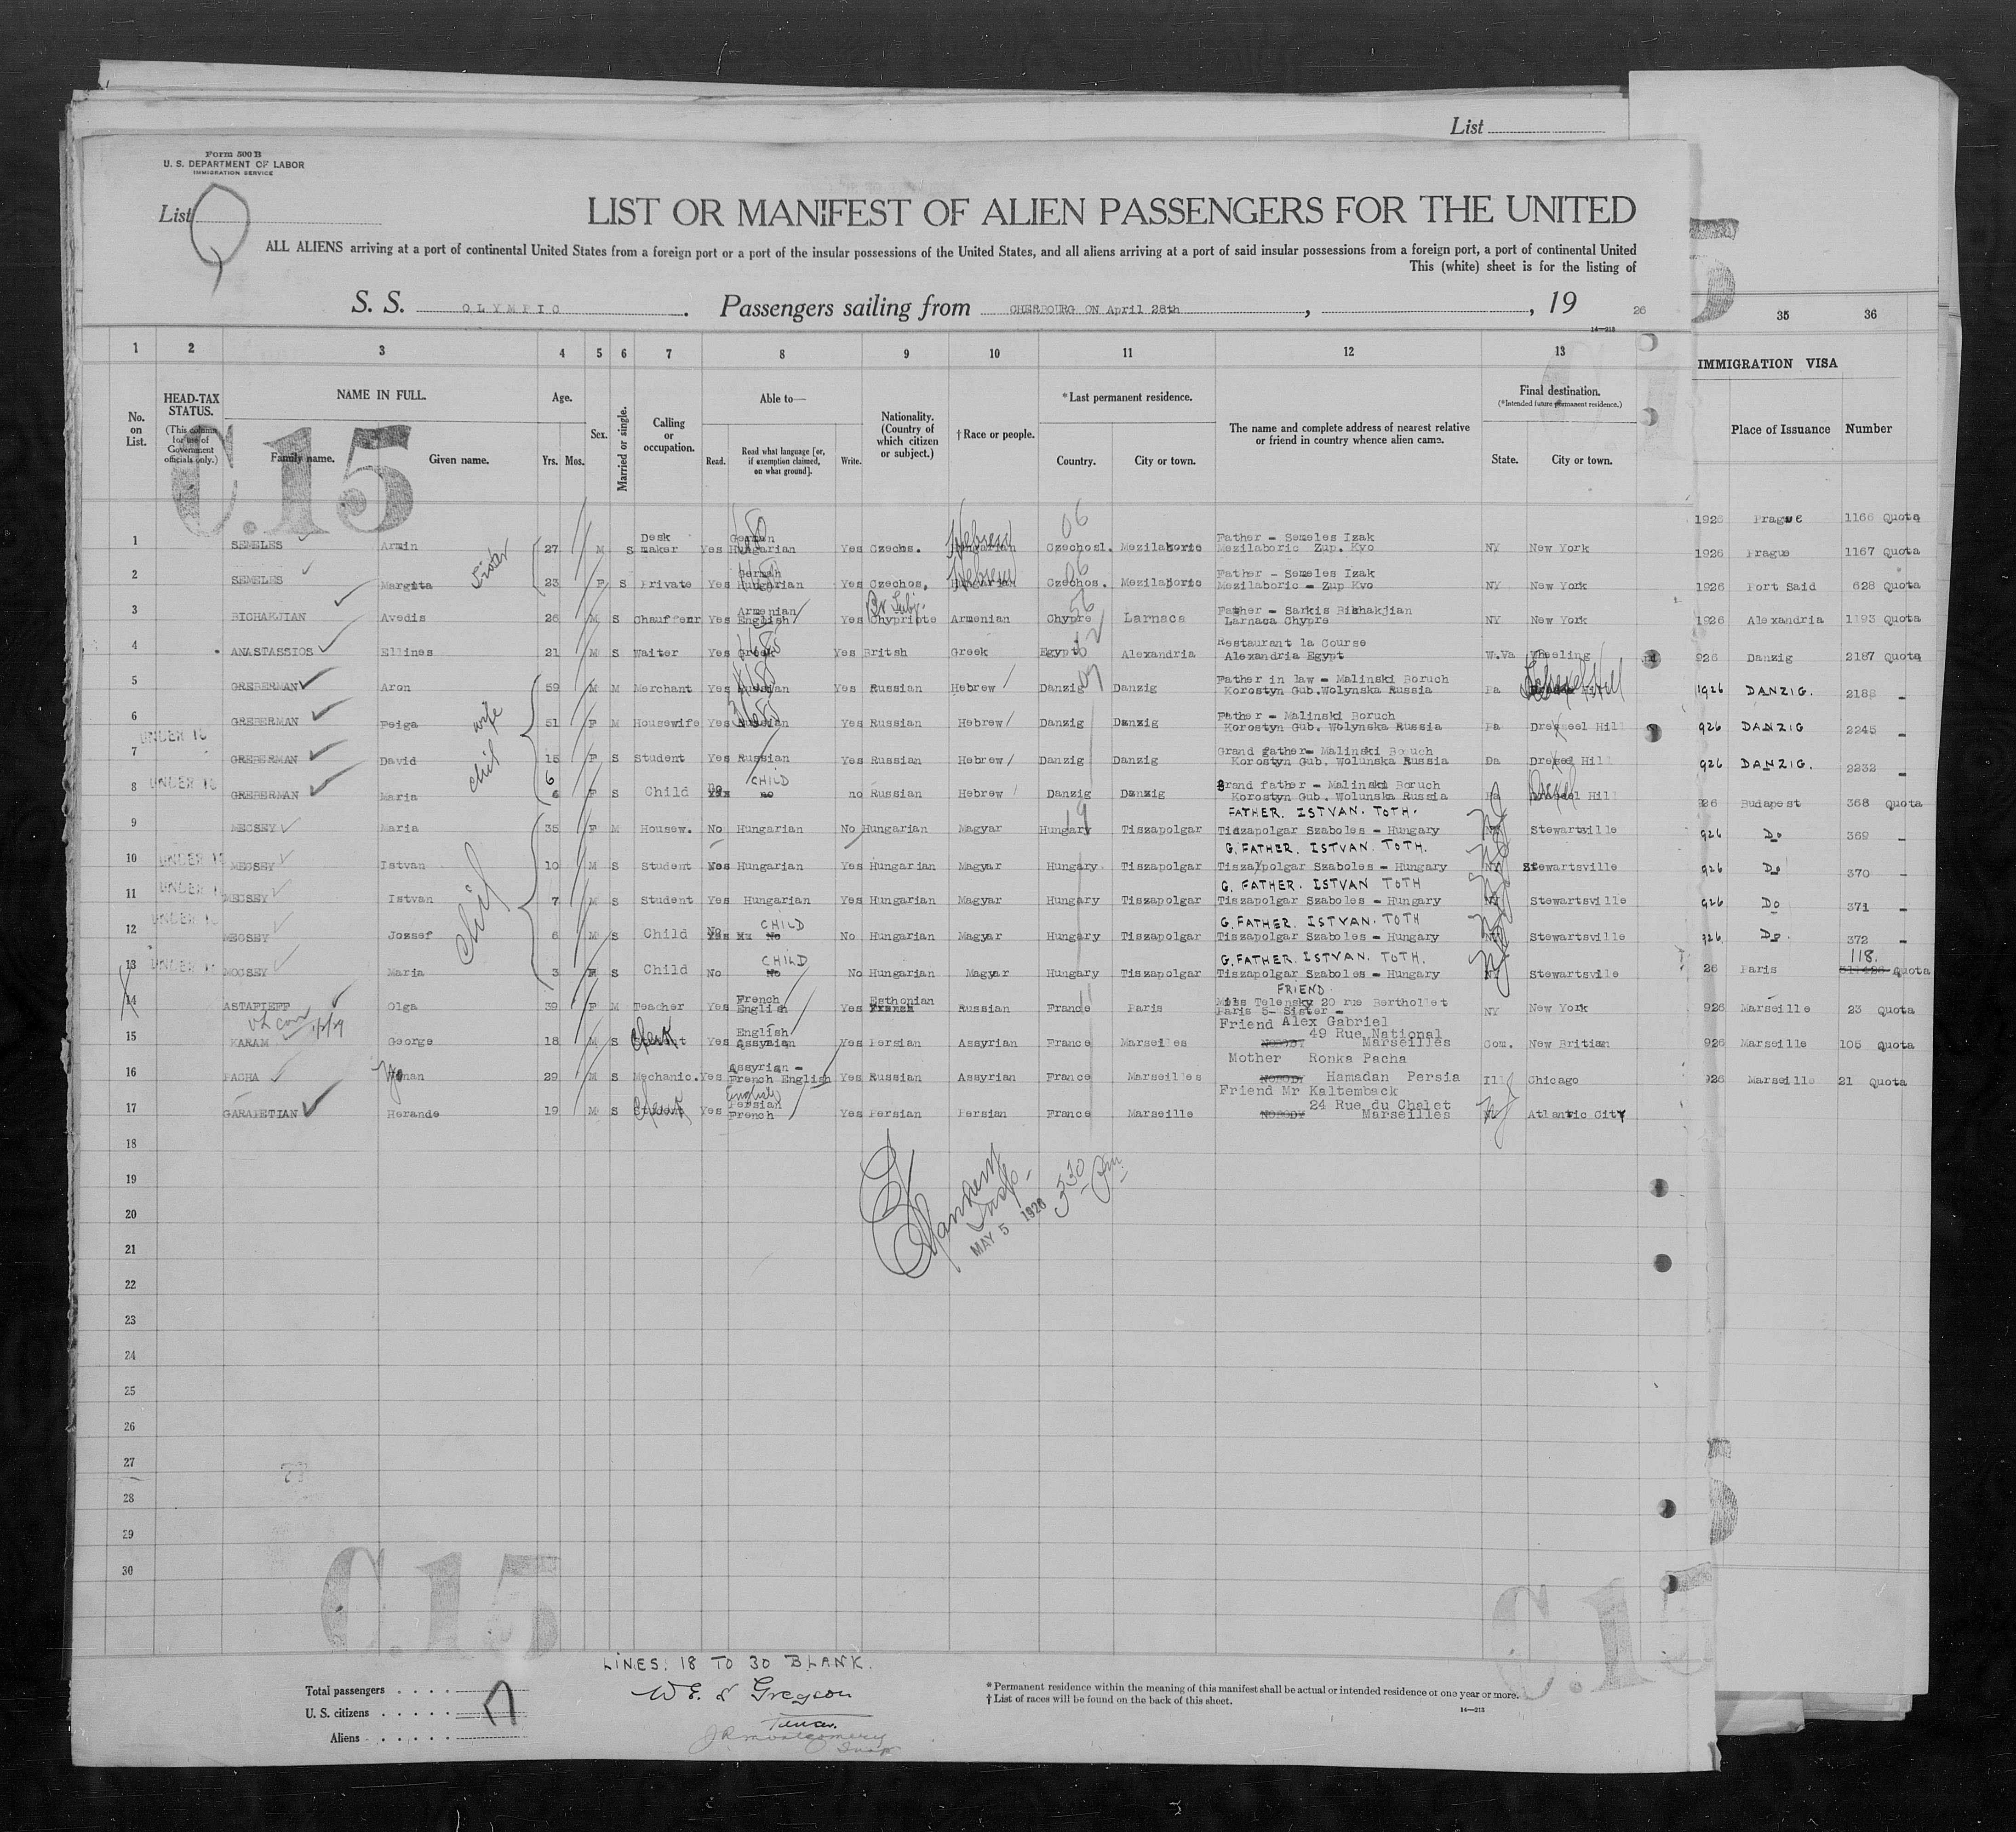 List
Form 500 B
U. S. DEPARTMENT OF LABOR
IMMIGRATION SERVICE
List
LIST OR MANIFEST OF ALIEN PASSENGERS FOR THE UNITED
ALL ALIENS arriving at a port of continental United States from a foreign port or a port of the insular possessions of the United States, and all aliens arriving at a port of said insular possessions from a foreign port, a port of continental United
This (white) sheet is for the listing of
S. S. OLYMPIC. Passengers sailing from CHERBOURG ON April 28th, , 19 26
14—213
1 2 3 4 5 6 7 8 9 10 11 12 13 35 36
IMMIGRATION VISA
No. on List.
HEAD-TAX STATUS.
(This column for use of Government officials only.)
NAME IN FULL.
Family name. Given name.
Age.
Yrs. Mos.
Sex.
Married or single.
Calling or occupation.
Able to—
Read. Read what language [or, if exemption claimed, on what ground]. Write.
Nationality. (Country of which citizen or subject.)
† Race or people.
* Last permanent residence.
Country. City or town.
The name and complete address of nearest relative or friend in country whence alien came.
Final destination.
(*Intended future permanent residence.)
State. City or town.
Place of Issuance Number
C.15
1926 Prague 1166 Quota
1 SEMELES Armin 27 M S Desk maker Yes German Hungarian Yes Czechs. Hungarian Hebrew 06 Czechosl. Mezilaboric Father - Semeles Izak Mezilaboric Zup. Kvo NY New York
1926 Prague 1167 Quota
2 SEMELES Margita Sister 23 F S Private Yes German Hungarian Yes Czechos. Hungarian Hebrew 06 Czechos. Mezilaboric Father - Semeles Izak Mezilaboric - Zup Kvo NY New York
1926 Port Said 628 Quota
3 BICHAKJIAN Avedis 26 M S Chauffeur Yes Armenian English Yes Br Subj. Chypriote Armenian 56 Chypre Larnaca Father - Sarkis Bishakjian Larnaca Chypre NY New York
1926 Alexandria 1193 Quota
4 ANASTASSIOS Ellines 21 M S Waiter Yes Greek Yes Britsh Greek Egypt Alexandria Restaurant la Course Alexandria Egypt W.Va Wheeling
926 Danzig 2187 Quota
5 GREBERMAN Aron 59 M M Merchant Yes Russian Yes Russian Hebrew Danzig Danzig Father in law - Malinski Boruch Korostyn Gub.Wolynska Russia Pa Drexel Hill
1926 DANZIG. 2188 -
6 GREBERMAN Feiga wife 51 F M Housewife Yes Russian Yes Russian Hebrew Danzig Danzig Father - Malinski Boruch Korostyn Gub.Wolynska Russia Pa Drexel Hill
926 DANZIG 2245 -
UNDER 16
7 GREBERMAN David chil 15 F S Student Yes Russian Yes Russian Hebrew Danzig Danzig Grand gather- Malinski Boruch Korostyn Gub. Wolunska Russia Pa Drexel Hill
926 DANZIG. 2232 -
UNDER 16
8 GREBERMAN Maria 6 F S Child no CHILD no Russian Hebrew Danzig Danzig Grand father - Malinski Boruch Korostyn Gub. Wolunska Russia Pa Drexel Hill
926 Budapest 368 Quota
9 MECSEY Maria 35 F M Housew. No Hungarian No Hungarian Magyar Hungary Tiszapolgar FATHER. ISTVAN. TOTH. Tiszapolgar Szaboles - Hungary NJ Stewartsville
926 Do 369 -
10 UNDER 16 MECSEY Istvan 10 M S Student Yes Hungarian Yes Hungarian Magyar Hungary Tiszapolgar G. FATHER. ISTVAN. TOTH. Tiszapolgar Szaboles - Hungary NJ Stewartsville
926 Do 370 -
11 UNDER 1 MECSEY Istvan chil 7 M S Student Yes Hungarian Yes Hungarian Magyar Hungary Tiszapolgar G. FATHER. ISTVAN TOTH Tiszapolgar Szaboles - Hungary NJ Stewartsville
926 Do 371 -
12 UNDER 16 MECSEY Jozsef 6 M S Child No CHILD No No Hungarian Magyar Hungary Tiszapolgar G. FATHER. ISTVAN. TOTH Tiszapolgar Szaboles - Hungary NJ Stewartsville
926. Do. 372 -
13 UNDER 1 MOCSEY Maria 3 F S Child No CHILD No No Hungarian Magyar Hungary Tiszapolgar G. FATHER. ISTVAN. TOTH. Tiszapolgar Szaboles - Hungary NJ Stewartsville
26 Paris 118. Quota
14 ASTAFIEFF Olga 39 F M Teacher Yes French English Yes Esthonian French Russian France Paris FRIEND Miss Telensky 20 rue Berthollet Paris 5- Sister - NY New York
926 Marseille 23 Quota
15 KARAM George 18 M S Clerk Yes English Assyrian Yes Persian Assyrian France Marseiles Friend Alex Gabriel 49 Rue National NOBODY Marseilles Con. New Britian
926 Marseille 105 Quota
16 PACHA Yonan 29 M S Mechanic. Yes Assyrian - French English Yes Russian Assyrian France Marseilles Mother Ronka Pacha NOBODY Hamadan Persia Ill Chicago
926 Marseille 21 Quota
17 GARAPETIAN Herande 19 M S Student Clerk Yes English Persian French Yes Persian Persian France Marseille Friend Mr Kaltemback 24 Rue du Chalet NOBODY Marseilles NJ Atlantic City
18
19
20
MAY 5 1926 3 30 Pm
21
22
23
24
25
26
27
28
29
30
C.15
C.15
LINES. 18 TO 30 BLANK.
Total passengers
U. S. citizens
Aliens
17
W E. S Gregson
J R Montgomery
Insp
* Permanent residence within the meaning of this manifest shall be actual or intended residence of one year or more.
† List of races will be found on the back of this sheet.
14—213